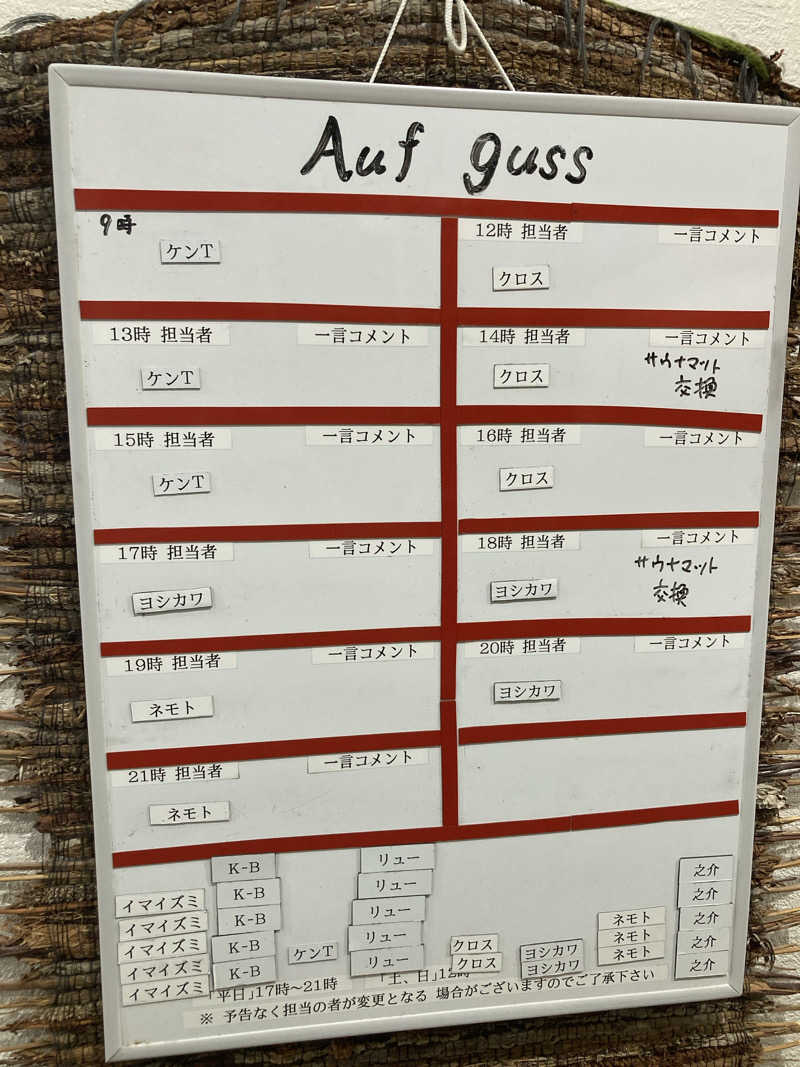 Auf guss
9時
ケンT
12時 担当者 一言コメント
クロス
13時 担当者 一言コメント
ケンT
14時 担当者 一言コメント
クロス
サウナマット
交換
15時 担当者 一言コメント
ケンT
16時 担当者 一言コメント
クロス
17時 担当者 一言コメント
ヨシカワ
18時 担当者 一言コメント
ヨシカワ
サウナマット
交換
19時 担当者 一言コメント
ネモト
20時 担当者 一言コメント
ヨシカワ
21時 担当者 一言コメント
ネモト
イマイズミ
イマイズミ
イマイズミ
イマイズミ
イマイズミ
K-B
K-B
K-B
K-B
K-B
ケンT
リュー
リュー
リュー
リュー
リュー
クロス
クロス
ヨシカワ
ヨシカワ
ネモト
ネモト
ネモト
之介
之介
之介
之介
之介
「平日」17時～21時 「土、日」12時
※ 予告なく担当の者が変更となる 場合がございますのでご了承下さい